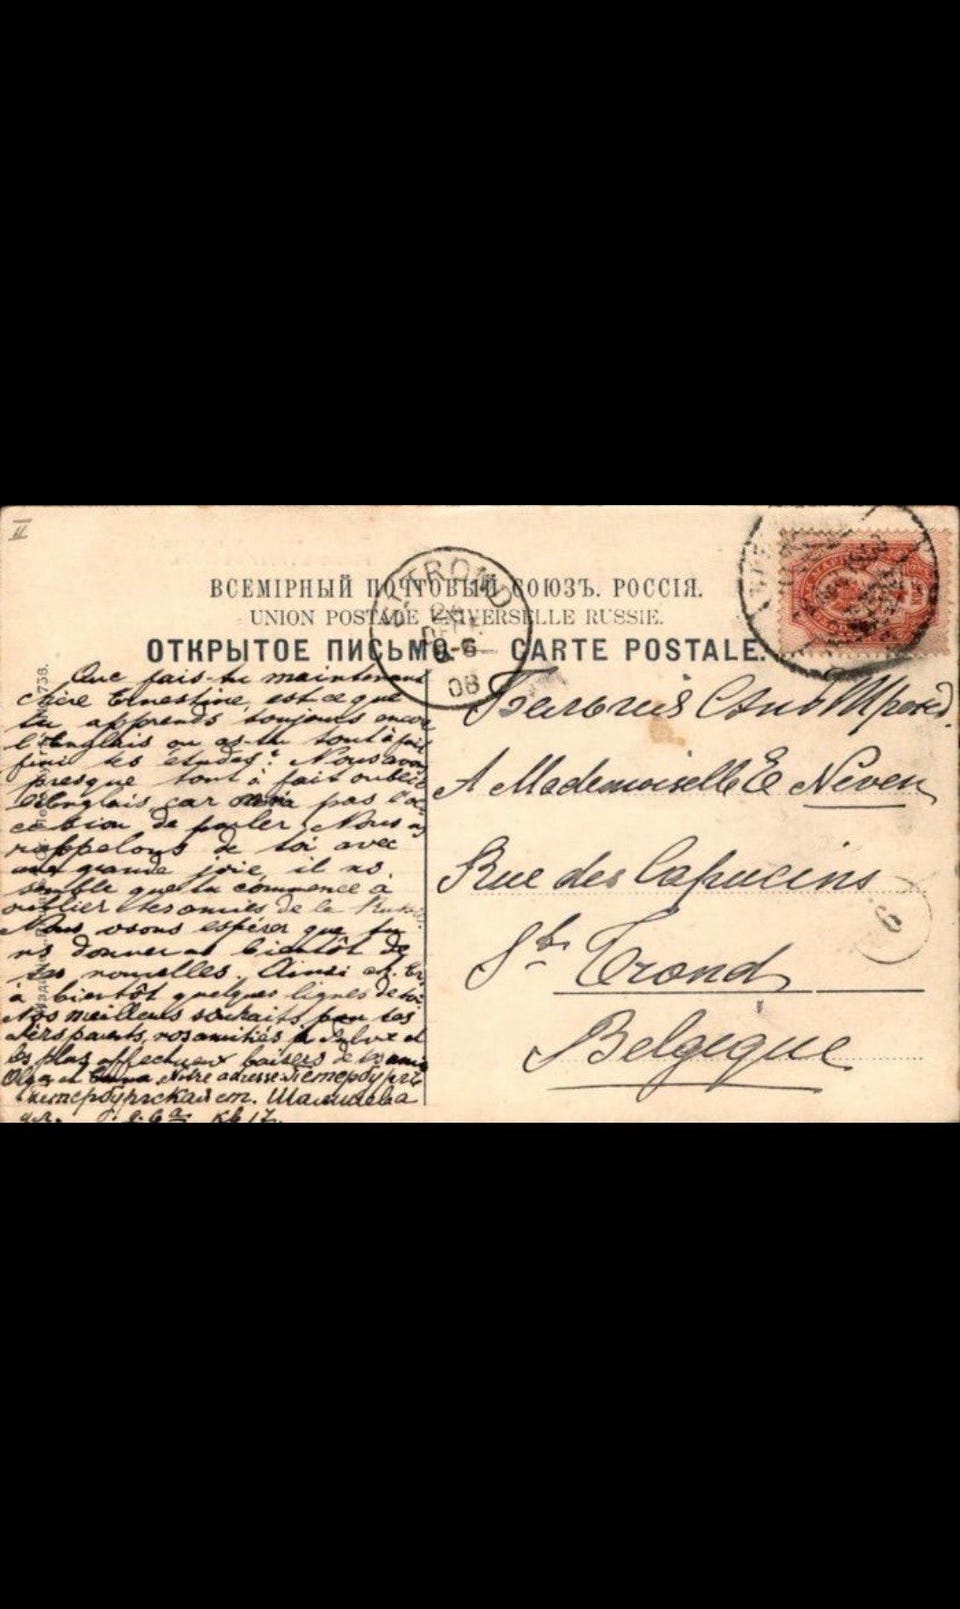 II
ВСЕМІРНЫЙ ПОЧТОВЫЙ СОЮЗЪ. РОССІЯ.
UNION POSTALE UNIVERSELLE RUSSIE.
ОТКРЫТОЕ ПИСЬМО. — CARTE POSTALE.
ST TROND
6-
08
Que fais-tu maintenant
chère Ernestine, est ce que
tu apprends toujours encore
l'Englais ou as-tu tout à fait
fini tes études? Nous avons
presque tout à fait oublié
l'Englais, car on n'a pas l'oc
casion de parler. Nous ns
rappelons de toi avec
une grande joie, il ns
semble que tu commence à
oublier tes amies de la Russie.
Nous osons espérer que tu
ns donneras bientôt de
tes nouvelles. Ainsi
à bientôt quelques lignes de toi.
Nos meilleurs souhaits pour tes
chers parents, nos amitiés à et
les plus affectueux baisers de tes amies
Olga et Notre adresse Петербургъ
Петербургская ст.
кв 17.
Бельгия Сентъ Тронд.
A Mademoiselle E Neven
Rue des Capucins
St. Trond
Belgeque
6